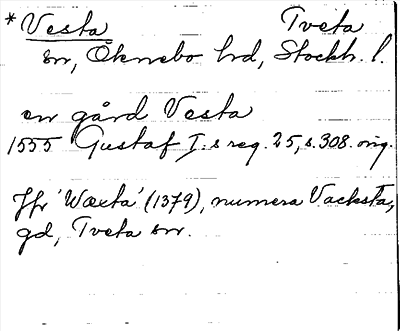 * Vesta Tveta
sn, Öknebo hd, Stockh. l.
en gård Vesta
1555 Gustaf I:s reg. 25, s. 308. orig.
Jfr 'Wæxta' (1379), numera Vacksta,
gd, Tveta sn.